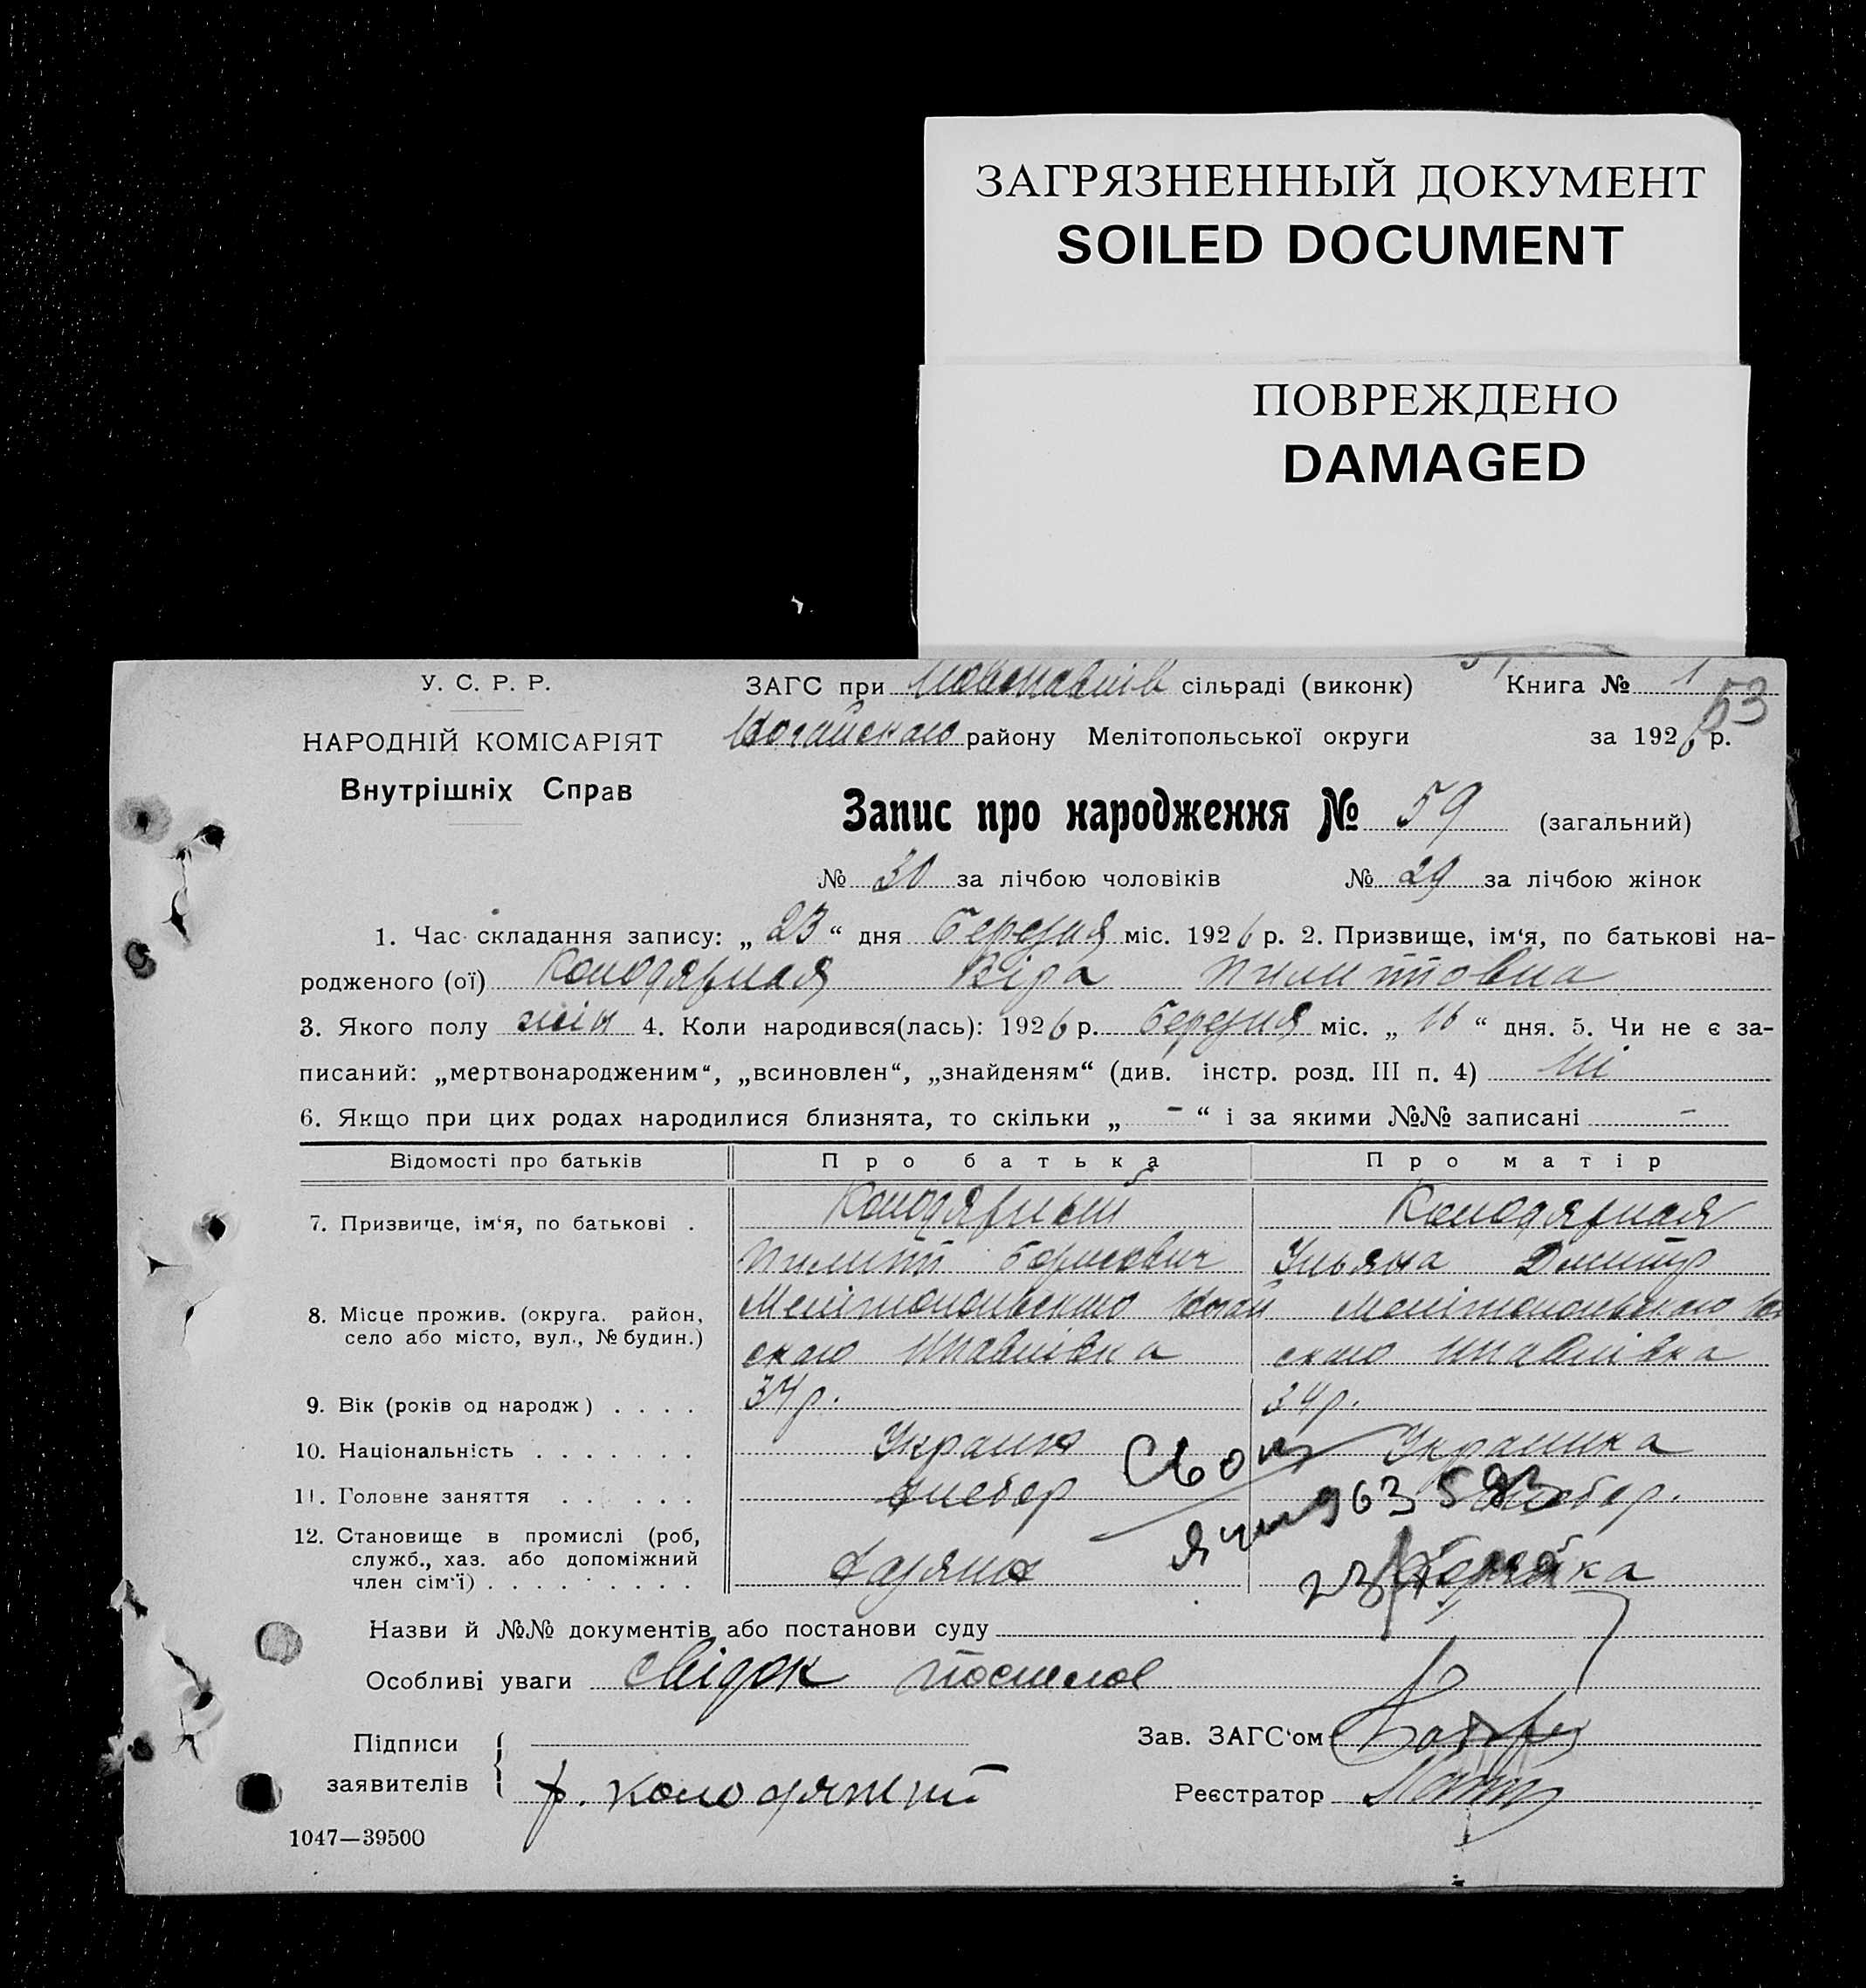 ЗАГРЯЗНЕННЫЙ ДОКУМЕНТ
SOILED DOCUMENT
ПОВРЕЖДЕНО
DAMAGED
У. С. Р. Р.
ЗАГС при сільраді (виконк) Книга № 1
53
НАРОДНІЙ КОМІСАРІЯТ
Ногайского району Мелітопольської округи за 1926 р.
Внутрішніх Справ
Запис про народження № 59 (загальний)
№ 30 за лічбою чоловіків № 29 за лічбою жінок
1. Час складання запису: „ 23 “ дня березня міс. 1926 р. 2. Призвище, ім‘я, по батькові на-
родженого (ої) Колодярная Віра Пилиповна
3. Якого полу жін 4. Коли народився(лась): 1926 р. березня міс. „ 16 “ дня. 5. Чи не є за-
писаний: „мертвонародженим“, „всиновлен“, „знайденям“ (див. інстр. розд. III п. 4) Ні
6. Якщо при цих родах народилися близнята, то скільки „ - “ і за якими №№ записані -
Відомості про батьків Про батька Про матір
7. Призвище, ім‘я, по батькові . Колодярный Колодярная
Пилип Борисович Ульяна Дмитр
8. Місце прожив. (округа. район, Мелітопольського Ногай Мелітопольського
село або місто, вул., № будин.) ского ского
9. Вік (років од народж) . . . . 34 р. 34 р.
10. Національність . . . . . . . Украинка
11. Головне заняття . . . . . . хлебор хлебор.
963 583
12. Становище в промислі (роб,
служб., хаз. або допоміжний
член сім‘ї) . . . . . . . . . Хазяин
Назви й №№ документів або постанови суду
Особливі уваги свідок
Підписи Зав. ЗАГС‘ом
заявителів ф. Реєстратор
1047—39500